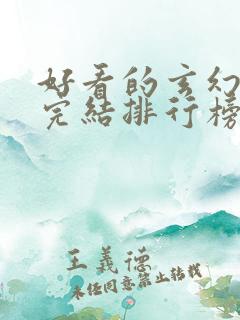 好看的玄幻
完结排行榜
王義德
未经同意禁止转载